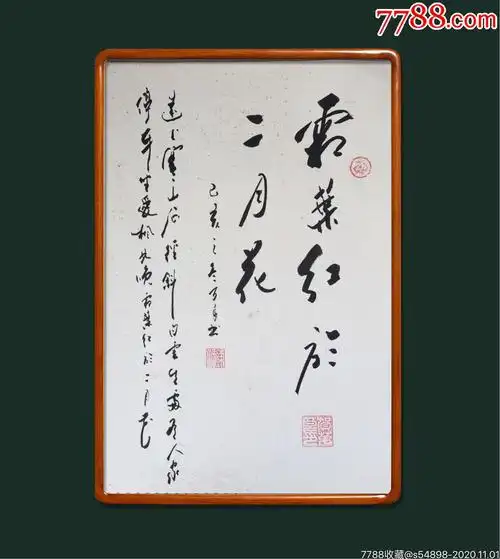 7788.com
霜葉红於
二月花
己亥之冬
遠上寒山石徑斜白雲生處有人家
停車坐愛楓林晚霜葉红於二月花
7788收藏@s54898-2020.11.01